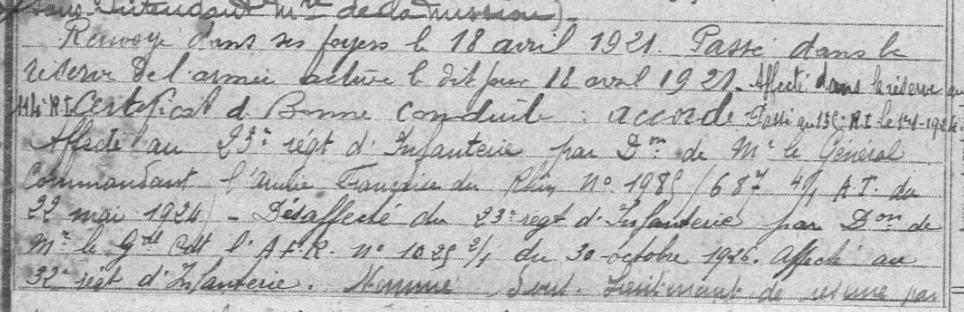 sous Intendant Mre de la mission).
Renvoyé dans ses foyers le 18 avril 1921. Passé dans la
réserve de l'armée active le dit jour 18 avril 1921. Affecté dans la réserve au
R.I. Certificat de Bonne conduite : accordé Passé au R.I. le
Affecté au 23e régt d'Infanterie par Don de Mr le Général
Commandant l'armée Française du Rhin No 1985/687 4/1 A.T. du
22 mai 1924) - Désaffecté du 23e régt d'Infanterie par Don de
Mr le Gal Cdt l'A.F.R. No 1025 2/1 du 30 octobre 1926. Affecté au
32e régt d'Infanterie. Nommé Sous. Lieutenant de réserve par